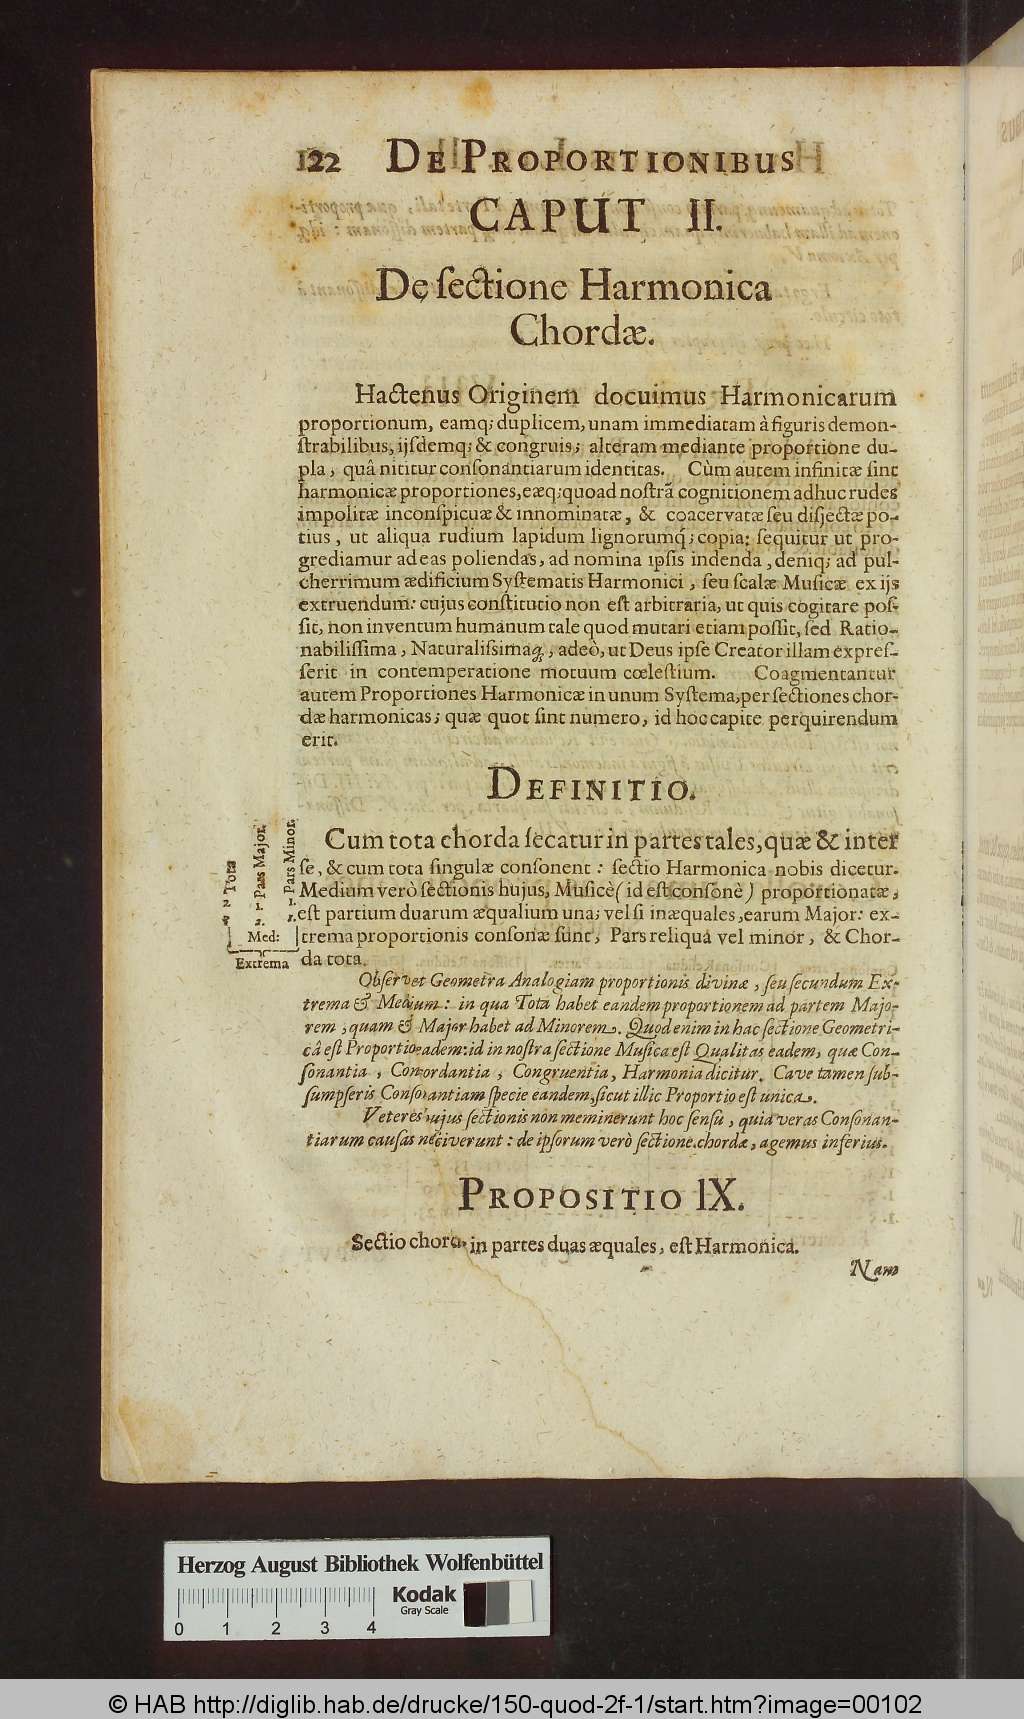 122 DE PROPORTIONIBUS
CAPUT II.
De ſectione Harmonica
Chordæ.
Hactenus Originem docuimus Harmonicarum
proportionum, eamq; duplicem, unam immediatam à figuris demon-
ſtrabilibus, ijſdemq; & congruis; alteram mediante proportione du-
pla, quâ nititur conſonantiarum identitas. Cùm autem infinitæ ſint
harmonicæ proportiones, eæq; quoad noſtrã cognitionem adhuc rudes
impolitæ inconſpicuæ & innominatæ, & coacervatæ ſeu disjectæ po-
tius, ut aliqua rudium lapidum lignorumq́; copia: ſequitur ut pro-
grediamur ad eas poliendas, ad nomina ipſis indenda, deniq; ad pul-
cherrimum ædificium Syſtematis Harmonici, ſeu ſcalæ Muſicæ ex ijs
extruendum: cujus conſtitutio non eſt arbitraria, ut quis cogitare poſ-
ſit, non inventum humanum tale quod mutari etiam poſſit, ſed Ratio-
nabiliſſima, Naturaliſsimaq;, adeò, ut Deus ipſe Creator illam expreſ-
ſerit in contemperatione motuum cœleſtium. Coagmentantur
autem Proportiones Harmonicæ in unum Syſtema, per ſectiones chor-
dæ harmonicas; quæ quot ſint numero, id hoc capite perquirendum
erit.
DEFINITIO.
Cum tota chorda ſecatur in partes tales, quæ & inter
ſe, & cum tota ſingulæ conſonent: ſectio Harmonica nobis dicetur.
Medium verò ſectionis hujus, Muſicè (id eſt conſonè) proportionatæ,
eſt partium duarum æqualium una; vel ſi inæquales, earum Major: ex-
trema proportionis conſonæ ſunt, Pars reliqua vel minor, & Chor-
da tota.
Tota
2.
Pars Major.
1.
2.
Pars Minor.
1.
1.
Med:
Extrema
Obſervet Geometra Analogiam proportionis divinæ, ſeu ſecundum Ex-
trema & Medium: in qua Tota habet eandem proportionem ad partem Majo-
rem, quam & Major habet ad Minorem. Quod enim in hac ſectione Geometri-
câ eſt Proportio eadem: id in noſtra ſectione Muſica eſt Qualitas eadem, quæ Con-
ſonantia, Concordantia, Congruentia, Harmonia dicitur. Cave tamen ſub-
ſumpſeris Conſonantiam ſpecie eandem, ſicut illic Proportio eſt unica.
Veteres hujus ſectionis non meminerunt hoc ſenſu, quia veras Conſonan-
tiarum cauſas neſciverunt: de ipſorum verò ſectione chordæ, agemus inferius.
PROPOSITIO IX.
Sectio chordæ in partes duas æquales, eſt Harmonica.
Nam
Herzog August Bibliothek Wolfenbüttel
Kodak
Gray Scale
0 1 2 3 4
© HAB http://diglib.hab.de/drucke/150-quod-2f-1/start.htm?image=00102